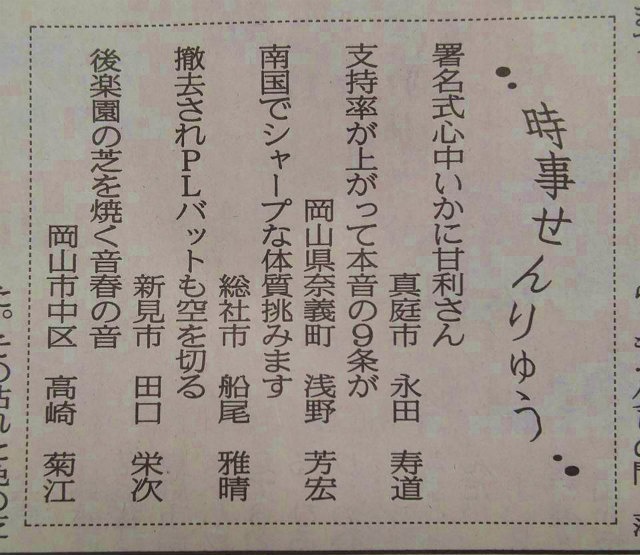 時事せんりゅう
署名式心中いかに甘利さん
真庭市 永田 寿道
支持率が上がって本音の9条が
岡山県奈義町 浅野 芳宏
南国でシャープな体質挑みます
総社市 船尾 雅晴
撤去されPLバットも空を切る
新見市 田口 栄次
後楽園の芝を焼く音春の音
岡山市中区 高崎 菊江